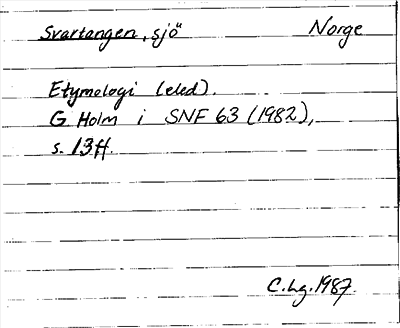 Svartangen, sjö Norge
Etymologi (eled).
G Holm i SNF 63 (1982),
s. 13ff.
C.Lg. 1987